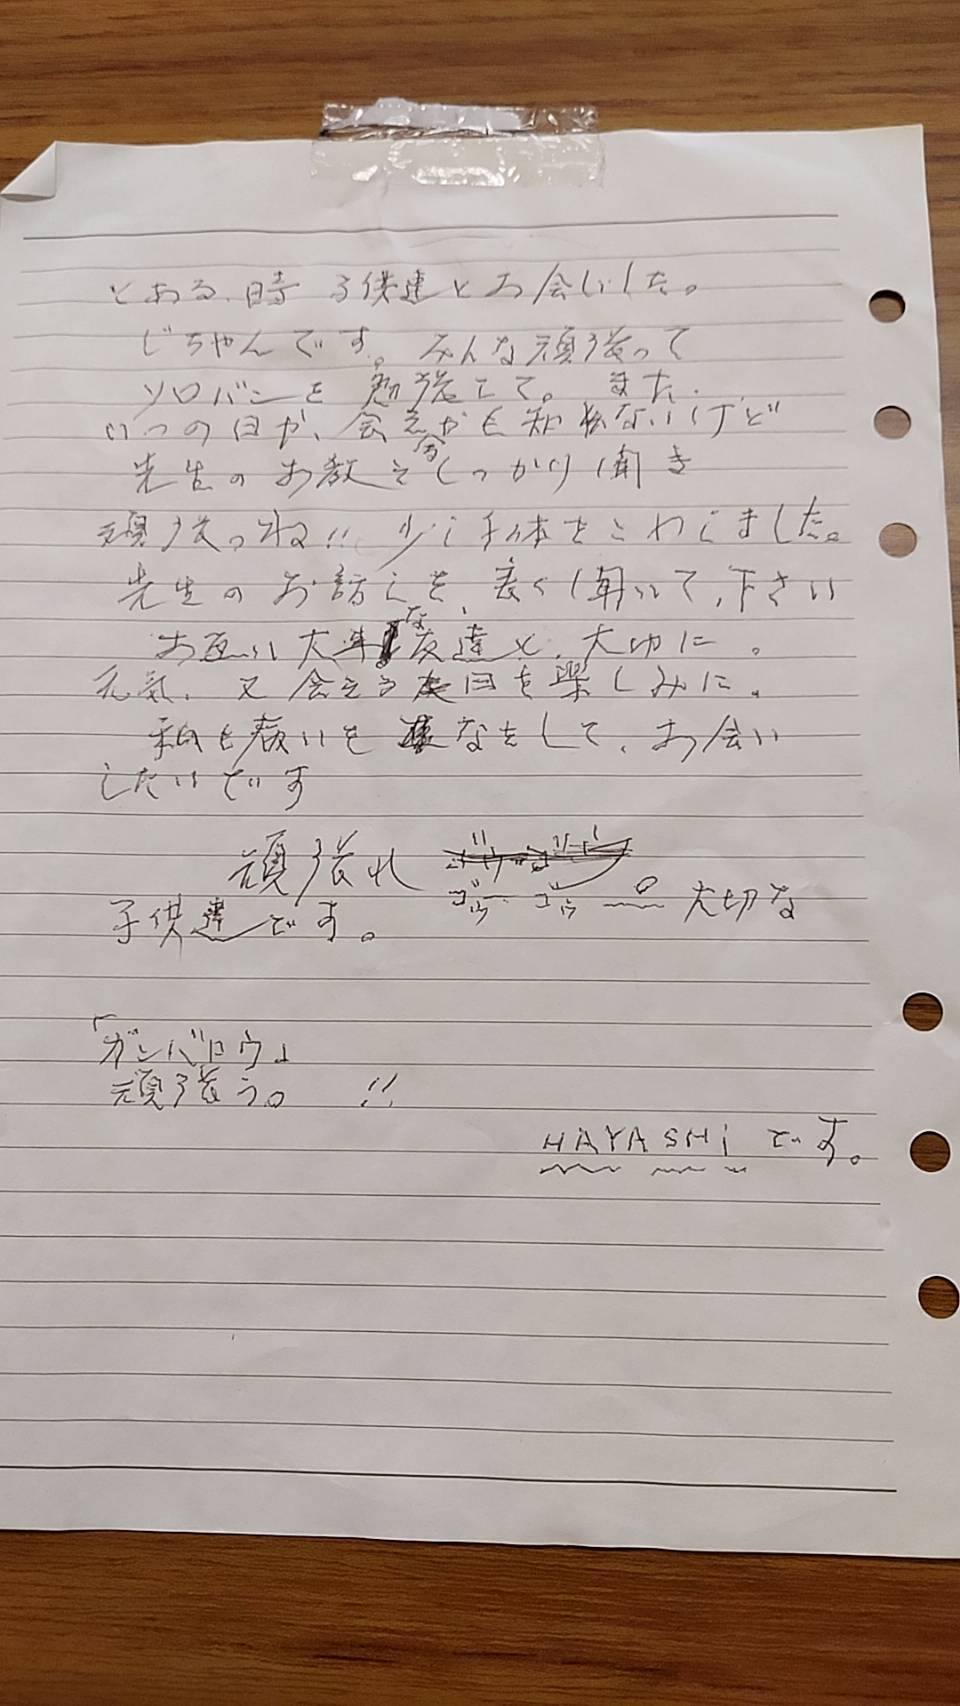 とある時子供達とお会いした。
じちゃんです。みんな頑張って
ソロバンを勉強して。また、
いつの日か、会えかも知れないけど
先生のお教えをしっかり聞き
頑張ってね!! 少し体をこわしました。
先生のお話しを、良く聞いて、下さい
お互い大事な友達を、大切に。
元気、又会える日を楽しみに。
私も病いをなをして、お会い
したいです
頑張れ ゴウ ゴウ 大切な
子供達です。
「ガンバロウ」
頑張う。 !!
HAYASHiです。